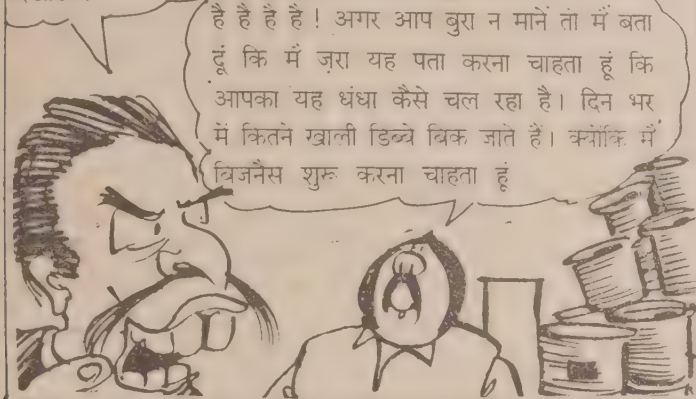 है है है है ! अगर आप बुरा न मानें तो मैं बता
दूं कि मैं ज़रा यह पता करना चाहता हूं कि
आपका यह धंधा कैसे चल रहा है। दिन भर
में कितने खाली डिब्बे बिक जाते हैं। क्योंकि मैं
बिजनैस शुरू करना चाहता हूं